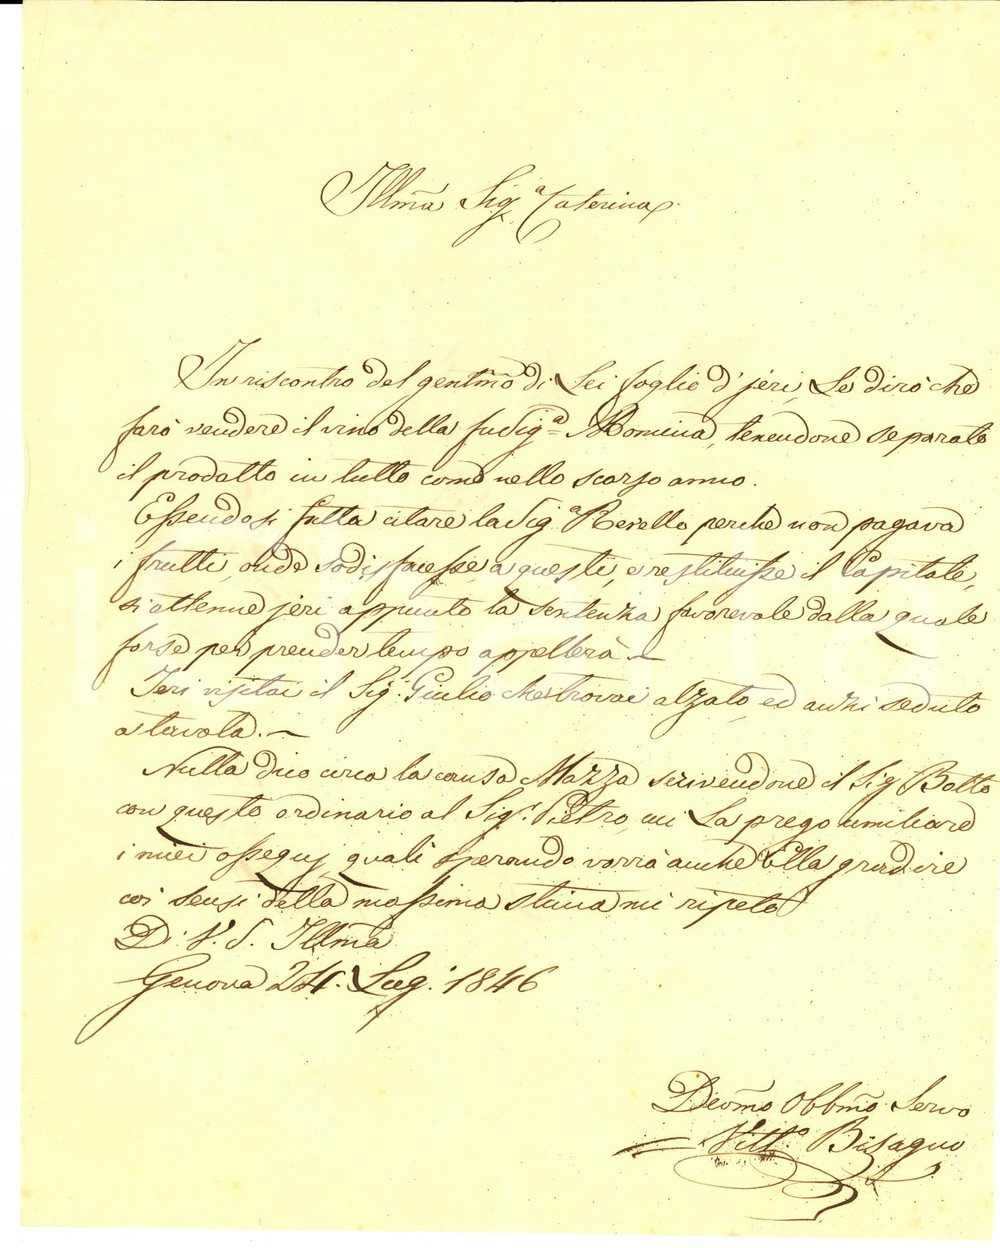 Illma Sig.a Caterina
In riscontro del gentmo di Lei foglio d'jeri, Le dirò che
farò vendere il vino della fu Sig.a Momina, tenendone separato
il prodotto in tutto come nello scorso anno.
Essendosi fatta citare la Sig.a Revello perchè non pagava
i frutti, onde sodisfacesse a questi, e restituisse il Capitale,
si ottenne jeri appunto la sentenza favorevole dalla quale
forse per prender tempo appellerà.
Jeri visitai il Sig. Giulio che trovai alzato, ed anzi seduto
a tavola.
Nulla dico circa la causa Mazza scrivendone il Sig. Botto
con questo ordinario al Sig.r Pietro, cui La prego umiliare
i miei ossequj, quali sperando vorrà anche Ella gradire
coi sensi della massima stima mi ripeto
Di V. S. Illma
Genova 24. Lug. 1846
Devmo Obbmo Servo
Vitt.o Bisagno